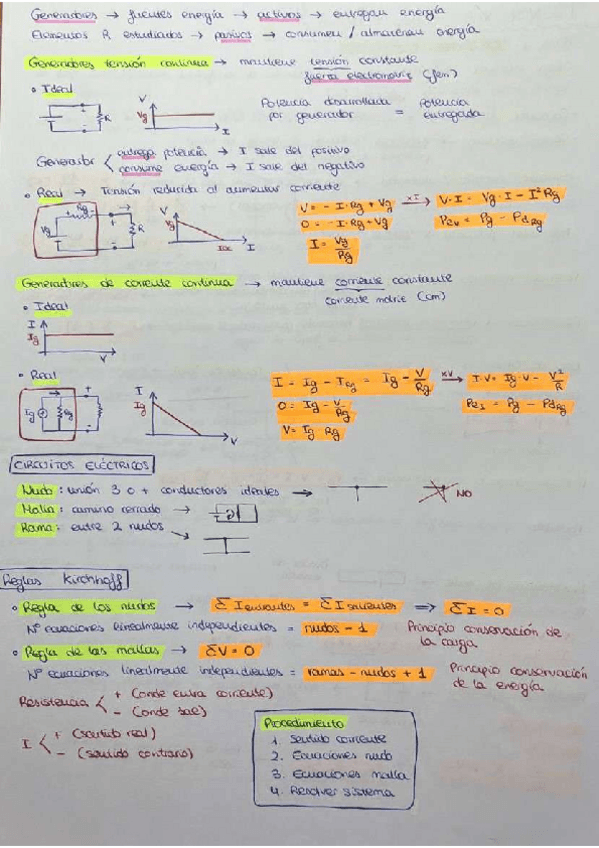 Generadores → fuentes energía → activos → entregan energía
Elementos R estudiados → pasivos → consumen / almacenan energía
Generadores tensión continua → mantiene tensión constante
fuerza electromotriz (fem)
• Ideal
V
Vg
I
R
Potencia desarrollada por generador = Potencia entregada
Generador
entrega potencia → I sale del positivo
consume energía → I sale del negativo
• Real → Tensión reducida al aumentar corriente
Rg
Vg
R
V
Vg
I
V = - I · Rg + Vg
xI
V · I = Vg · I - I² Rg
0 = - I · Rg + Vg
I = Vg / Rg
Generadores de corriente continua → mantiene corriente constante
corriente motriz (cm)
• Ideal
I
Ig
V
• Real
Ig
Rg
I
Ig
V
xV
0 = Ig - V / Rg
V = Ig Rg
CIRCUITOS ELÉCTRICOS
Nudo : unión 3 o + conductores ideales →
NO
Malla : camino cerrado →
Rama : entre 2 nudos
Reglas Kirchhoff
• Regla de los nudos → Σ I entrantes = Σ I salientes ⇒ Σ I = 0
Nº ecuaciones linealmente independientes = nudos - 1
Principio conservación de la carga
• Regla de las mallas → Σ V = 0
Nº ecuaciones linealmente independientes = ramas - nudos + 1
Principio conservación de la energía
Resistencia
+ (donde entra corriente)
- (donde sale)
I
+ (sentido real)
- (sentido contrario)
Procedimiento
1. Sentido corriente
2. Ecuaciones nudo
3. Ecuaciones malla
4. Resolver sistema